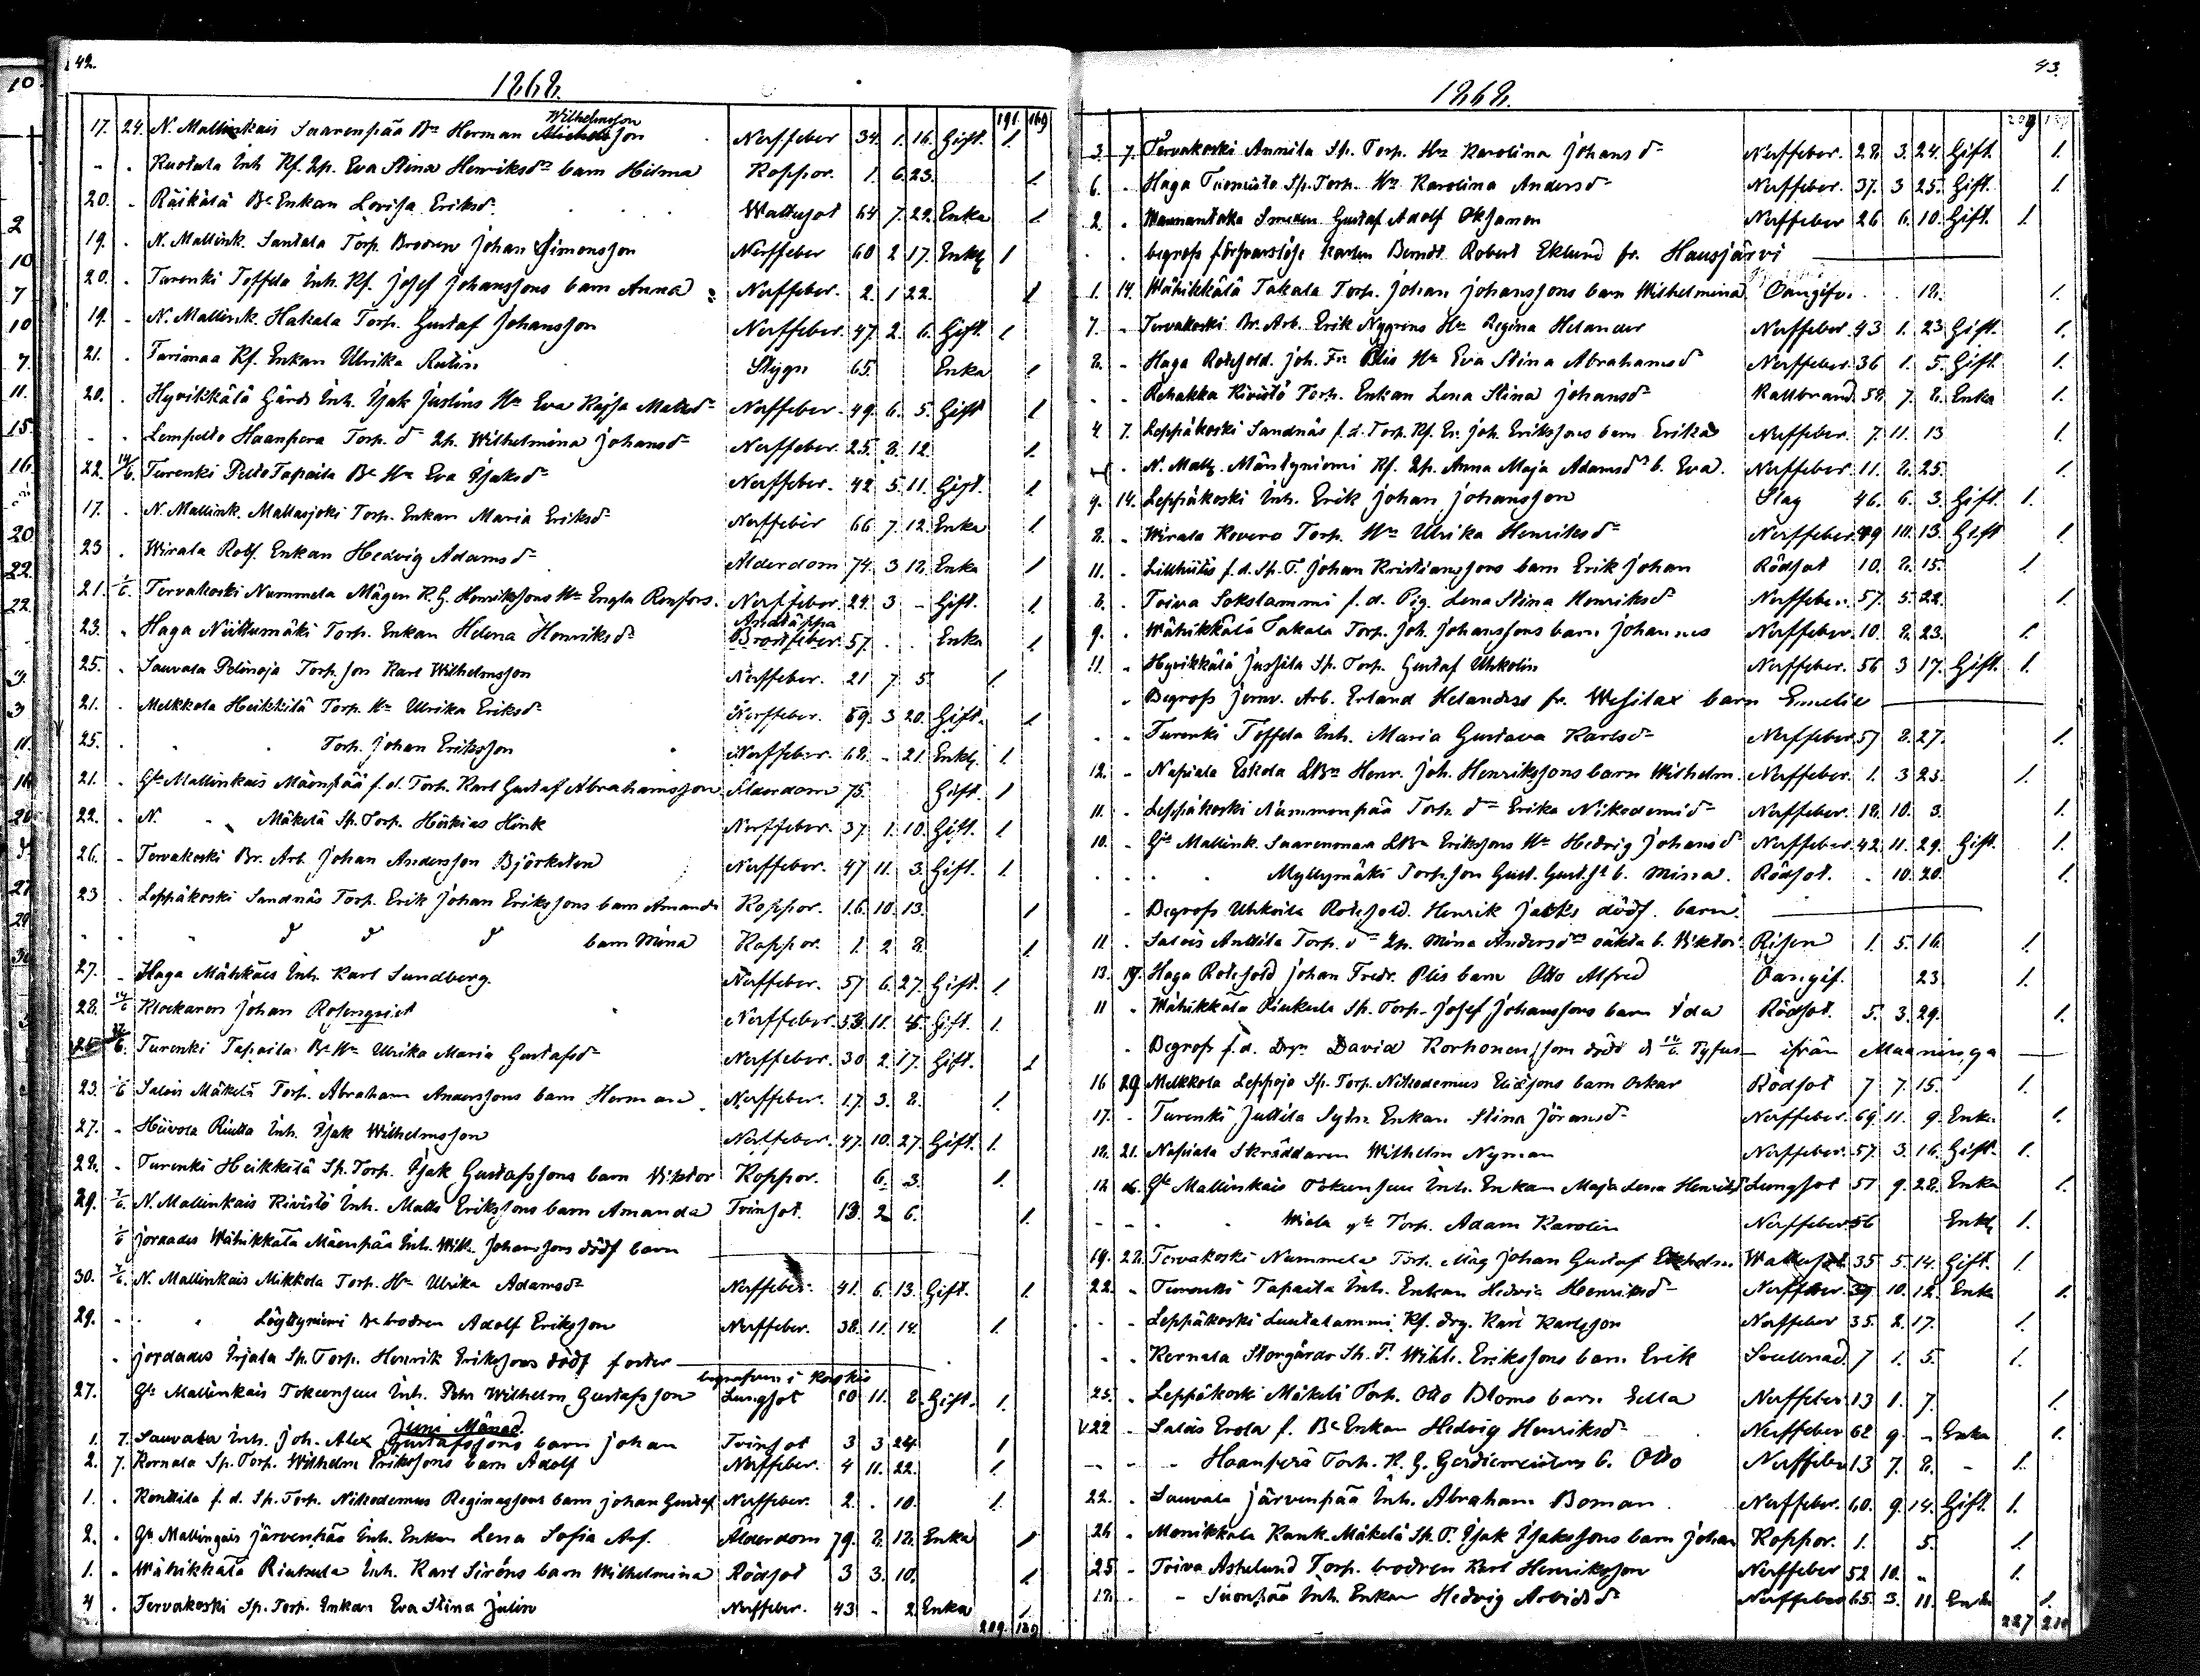 42.
1868.
191. 169
17. 24. N. Mallinkais Saarenpää Bn Herman Wilhelmsson Nerffeber 34. 1. 16. Gift. 1.
- . Ruotula Inh. Kf. Hp. Eva Stina Henriksdr barn Hilma Koppor. 1. 6. 23. 1.
20. . Räikälä Be Enkan Lovisa Eriksd. Wattusot 64 7. 29. Enka 1.
19. . N. Mallink. Santala Torp. Brodren Johan Simonsson Nerffeber 60 2 17. Enkl. 1
20. . Turenki Toffela Inh. Kf. Josef Johanssons barn Anna Nerffeber. 2. 1 22. 1
19. . N. Mallink. Hakala Torp. Gustaf Johansson Nerffeber. 47. 2. 6. Gift. 1
21. . Tarimaa Kf. Enkan Ulrika Stygn 65. Enka 1.
20. . Hyvikkälä Gårds Inh. Isak Justins Hu Eva Kajsa Matsdr Nerffeber 49. 6. 5. Gift 1
- . Lempelto Haanpera Torp. dr Hp. Wilhelmina Johansdr Nerffeber 25. 8. 12. 1.
22. 14/6. Turenki Pelto Tapaila Be Hu Eva Isaksdr Nerffeber. 42 5. 11. Gift. 1.
17. . N. Mallink. Mallasjoki Torp. Enkan Maria Eriksdr Nerffeber 66 7. 12. Enka 1
23 . Wirala Rotf. Enkan Hedvig Adamsdr Ålderdom 74. 3 12. Enka 1
21. 7/6. Tervakoski Nummela Mågen K. G. Henrikssons Hu Engla Renfors. Nerffeber. 29. 3 - Gift. 1
23. . Haga Niittumäki Torp. Enkan Helena Henriksdr Andtäppa Bröstfeber. 57. . . Enka 1
25. . Sauvala Pelinoja Torp. son Karl Wilhelmsson Nerffeber. 21 7. 5. 1.
21. . Melkkola Heikkilä Torp. Hu Ulrika Eriksdr Nerffeber. 69. 3 20. Gift. 1
25. . " " Torp. Johan Eriksson Nerffeber. 68. - 21. Enkl. 1.
21. . Gla Mallinkais Mäenpää f. d. Torp. Karl Gustaf Abrahamsson Ålderdom 75. Gift. 1
22. . N. " Mäkelä Sp. Torp. Höikias Hörk Nerffeber. 37. 1. 10. Gift. 1
26. . Tervakoski Br. Arb. Johan Andersson Björksten Nerffeber. 47 11. 3. Gift. 1.
23 . Leppäkoski Sandnäs Torp. Erik Johan Erikssons barn Amanda Koppor. 16. 10. 13. 1
" " " d d d barn Mina Koppor. 1. 2 8. 1.
27. . Haga Mätikäes Inh. Karl Sundberg. Nerffeber. 57 6. 27. Gift. 1.
28. 14/6 Klockaren Johan Rosenqvist Nerffeber. 53. 11. 5. Gift. 1.
6. Turenki Tapaila Be Hu Ulrika Maria Gustafsdr Nerffeber. 30 2. 17. Gift. 1
23. Salois Mäkelä Torp. Abraham Anderssons barn Herman Nerffeber. 17. 3. 8. 1.
27. . Heivola Riutta Inh. Isak Wilhelmsson Nerffeber. 47. 10. 27. Gift. 1.
28. . Turenki Heikkilä Sp. Torp. Isak Gustafssons barn Viktor Koppor. 6. 3. 1.
29. 7/6. N. Mallinkais Kivistö Inh. Matts Erikssons barn Amanda Tvinsot. 13. 2 6. 1.
jordades Wähikkälä Mäenpää Inh. Wilh. Johanssons dödf. barn
30. 7/6. N. Mallinkais Mikkola Torp. Hu Ulrika Adamsdr Nerffeber. 41. 6. 13. Gift. 1.
29. . " Löyttyniemi Be brodren Adolf Eriksson Nerffeber. 38. 11. 14. 1.
. jordades Irjala Sp. Torp. Henrik Erikssons dödf foster
begrafven i Koskis
27. Gla Mallinkais Tokunsuu Inh. Petr Wilhelm Gustafsson Lungsot 50 11. 8. Gift. 1.
Juni Månad.
1. 7. Sauvala Inh. Joh. Alex. Gustafssons barn Johan Tvinsot 3 3 24. 1
2. 7. Kernala Sp. Torp. Wilhelm Erikssons barn Adolf Nerffeber. 4 11. 22. 1.
1. . Renttila f. d. Sp. Torp. Nikodemus Reginassons barn Johan Gustaf Nerffeber. 2. . 10. 1.
2. . Gla Mallingais Järvenpää Inh. Enkan Lena Sofia Arf. Ålderdom 79. 8. 12. Enka 1
1. . Wähikkälä Rinkula Inh. Karl Siréns barn Wilhelmina Rödsot 3 3. 10. 1.
4 . Tervakoski Sp. Torp. Enkan Eva Stina Julin Nerffeber. 43 - 2 Enka 1.
209. 189
43.
1868.
209 189
3. 7. Tervakoski Annila Sp. Torp. Hu Karolina Johansdr Nerffeber. 28. 3. 24. Gift. 1.
6. . Haga Tuomisto Sp. Torp. Hu Karolina Andersdr Nerffeber. 37. 3 25. Gift. 1.
2. . Wannantaka Smeden Gustaf Adolf Oksanen Nerffeber 26 6. 10. Gift. 1.
. begrofs försvarslöse karlen Berndt Robert Eklund fr. Hausjärvi
1. 14. Wähikkälä Takala Torp. Johan Johanssons barn Wilhelmina Oangifv. . . 18. 1.
7. . Tervakoski Br. Arb. Erik Nygrens Hu Regina Helander Nerffeber. 43 1. 23 Gift. 1.
8. . Haga Rotesold. Joh. Fr. Plis Hu Eva Stina Abrahamsdr Nerffeber. 36 1. 5. Gift. 1.
. . Rehakka Kivistö Torp. Enkan Lena Stina Johansdr Kallbrand 58. 7. 8. Enka 1.
4 7. Leppäkoski Sandnäs f. d. Torp. Kf. Er. Joh. Erikssons barn Erika Nerffeber. 7. 11. 13 1.
. N. Mall. Mäntyniemi Kf. Hp. Anna Maja Adamsdrs b. Eva. Nerffeber. 11. 8. 25. 1.
9. 14. Leppäkoski Inh. Erik Johan Johansson Slag 46. 6. 3. Gift. 1.
8. . Wirala Rovero Torp. Hu Ulrika Henriksdr Nerffeber. 49 10. 13. Gift 1
11. . Lillhiitis f. d. Sp. T. Johan Kristianssons barn Erik Johan Rödsot 10. 8. 15. 1.
8. . Toiva Sokslammi f. d. Pig. Lena Stina Henriksdr Nerffeber. 57. 5. 22. 1.
9. . Wähikkälä Takala Torp. Joh. Johanssons barn Johannes Nerffeber. 10. 8. 23. 1.
11. . Hyvikkälä Jussila Sp. Torp. Gustaf Uhkolin Nerffeber. 56 3 17. Gift. 1.
. Begrofs Jernv. Arb. Erland Helanders fr. Wesilax barn Emelie
. . Turenki Toffela Inh. Maria Gustava Karlsdr Nerffeber. 57 8. 27. 1.
12. . Napiala Eskola LBn Henr. Joh. Henrikssons barn Wilhelm. Nerffeber. 1. 3 23. 1.
11. . Leppäkoski Nummenpää Torp. dr Erika Nikodemidr Nerffeber. 18. 10. 3. 1.
10. . Gla Mallink. Saarenmaa LBn Erikssons Hu Hedvig Johansdr Nerffeber. 42. 11. 29. Gift. 1.
. . " Myllymäki Torp. son Gust. Gustfs b. Mina. Rödsot. . 10. 20. 1.
. Begrofs Uhkoila Rotesold. Henrik Jacks dödf. barn.
11 . Salois Anttila Torp. dr Hp. Mina Andersdrs oäkta b. Viktor Risen 1. 5. 16. 1.
13. 19. Haga Rotesold Johan Fredr. Plis barn Otto Alfred Oangif. 23 1.
11 . Wähikkälä Rinkula Sp. Torp. Josef Johanssons barn Ida Rödsot. 5. 3. 29. 1.
. Begrofs f. d. Drgn David Korhonen, som dödt d. 14/6. Tyfus ifrån Maaninga
16 29 Melkkola Leppoja Sp. Torp. Nikodemus Elissons barn Oskar Rödsot 7 7. 15. 1.
17. . Turenki Juttila Sytn. Enkan Stina Jöransdr Nerffeber. 69 11. 9. Enka. 1.
18. 21. Napiala Skräddaren Wilhelm Nyman Nerffeber. 57. 3. 16. Gift. 1.
14 . Gla Mallinkais Tokunsuu Inh. Enkan Maja Lena Henriksd Lungsot 51 9. 28. Enka 1.
- - . " Wiala gla Torp. Adam Karolin Nerffeber 56 Enkl 1.
19. 28. Tervakoski Nummela Torp. Måg Johan Gustaf Ekholm Wattusot 35 5. 14. Gift. 1.
22. . Turenki Tapaila Inh. Enkan Hedvig Henriksdr Nerffeber 39 10. 12. Enka 1.
. . Leppäkoski Luutalammi Kf. drg. Karl Karlsson Nerffeber 35. 2. 17. 1.
. . Kernala Storgårds Sp. T. Wilh. Erikssons barn Erik Svullnad. 7 1. 5. 1.
25. . Leppäkoski Mäkelä Torp. Otto Bloms barn Sella Nerffeber 13 1. 7. 1.
22 . Salois Erola f. Be Enkan Hedvig Henriksdr Nerffeber 62 9. - Enka 1.
- - " Haanperä Torp. K. G. Gerdtemeisters b. Otto Nerffeber 13 7. 8. - 1.
22. . Sauvala Järvenpää Inh. Abraham Boman Nerffeber. 60. 9. 14. Gift 1.
24 . Monikkala Kank. Mäkelä Sp. T. Isak Isakssons barn Johan Koppor. 1. 5. 1.
25 . Toiva Askelund Torp. brodren Karl Henriksson Nerffeber 52 10. - 1.
18. . " Suonpää Inh. Enkan Hedvig Arvidsdr Nerffeber 65. 3. 11. Enka 1.
227 210